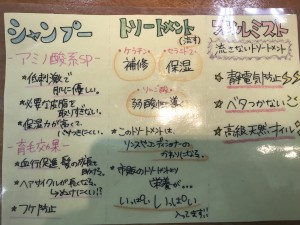 シャンプー
- アミノ酸系SP -
★ 低刺激で
肌に優しい。
★ 必要な皮脂を
取りすぎない。
★ 保湿力が高くて
パサつきにくい。
- 育毛効果 -
★ 血行促進、髪の成長を
助ける。
★ ヘアサイクルが長くなる。
★ フケ防止
トリートメント
(流す)
・ケラチン・
補修
・セラミド・
保湿
・リンゴ酸・
弱酸
★ このトリートメントは
リンスやコンディショナーの
かわりになる。
★ 市販のトリートメントより
栄養が…
いっぱいいっぱい
入ってます!!
オイルミスト
流さないトリートメント
★ 静電気防止
★ ベタつかない
★ 高級天然オイル